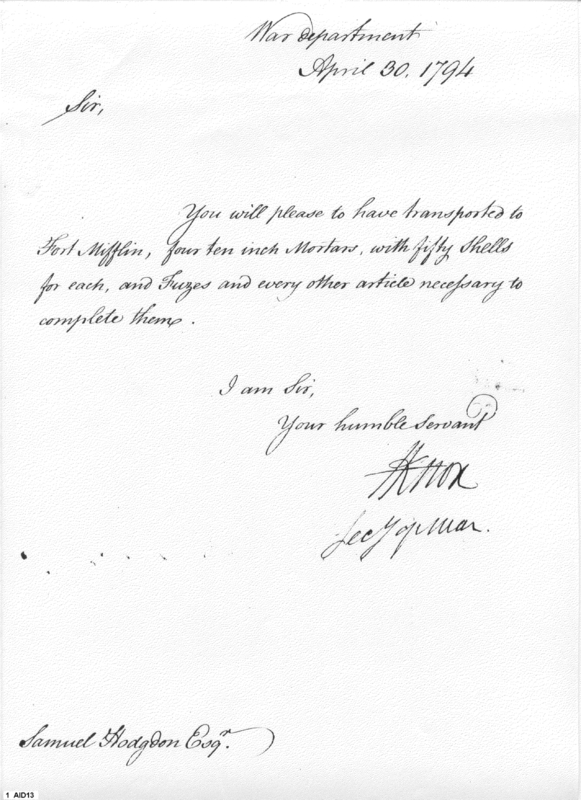 War department
April 30. 1794
Sir,
You will please to have transported to
Fort Mifflin, four ten inch Mortars, with fifty Shells
for each, and Fuzes and every other article necessary to
complete them.
I am Sir,
Your humble Servant
HKnox
Secy of War.
Samuel Hodgdon Esqr.
1 AID13